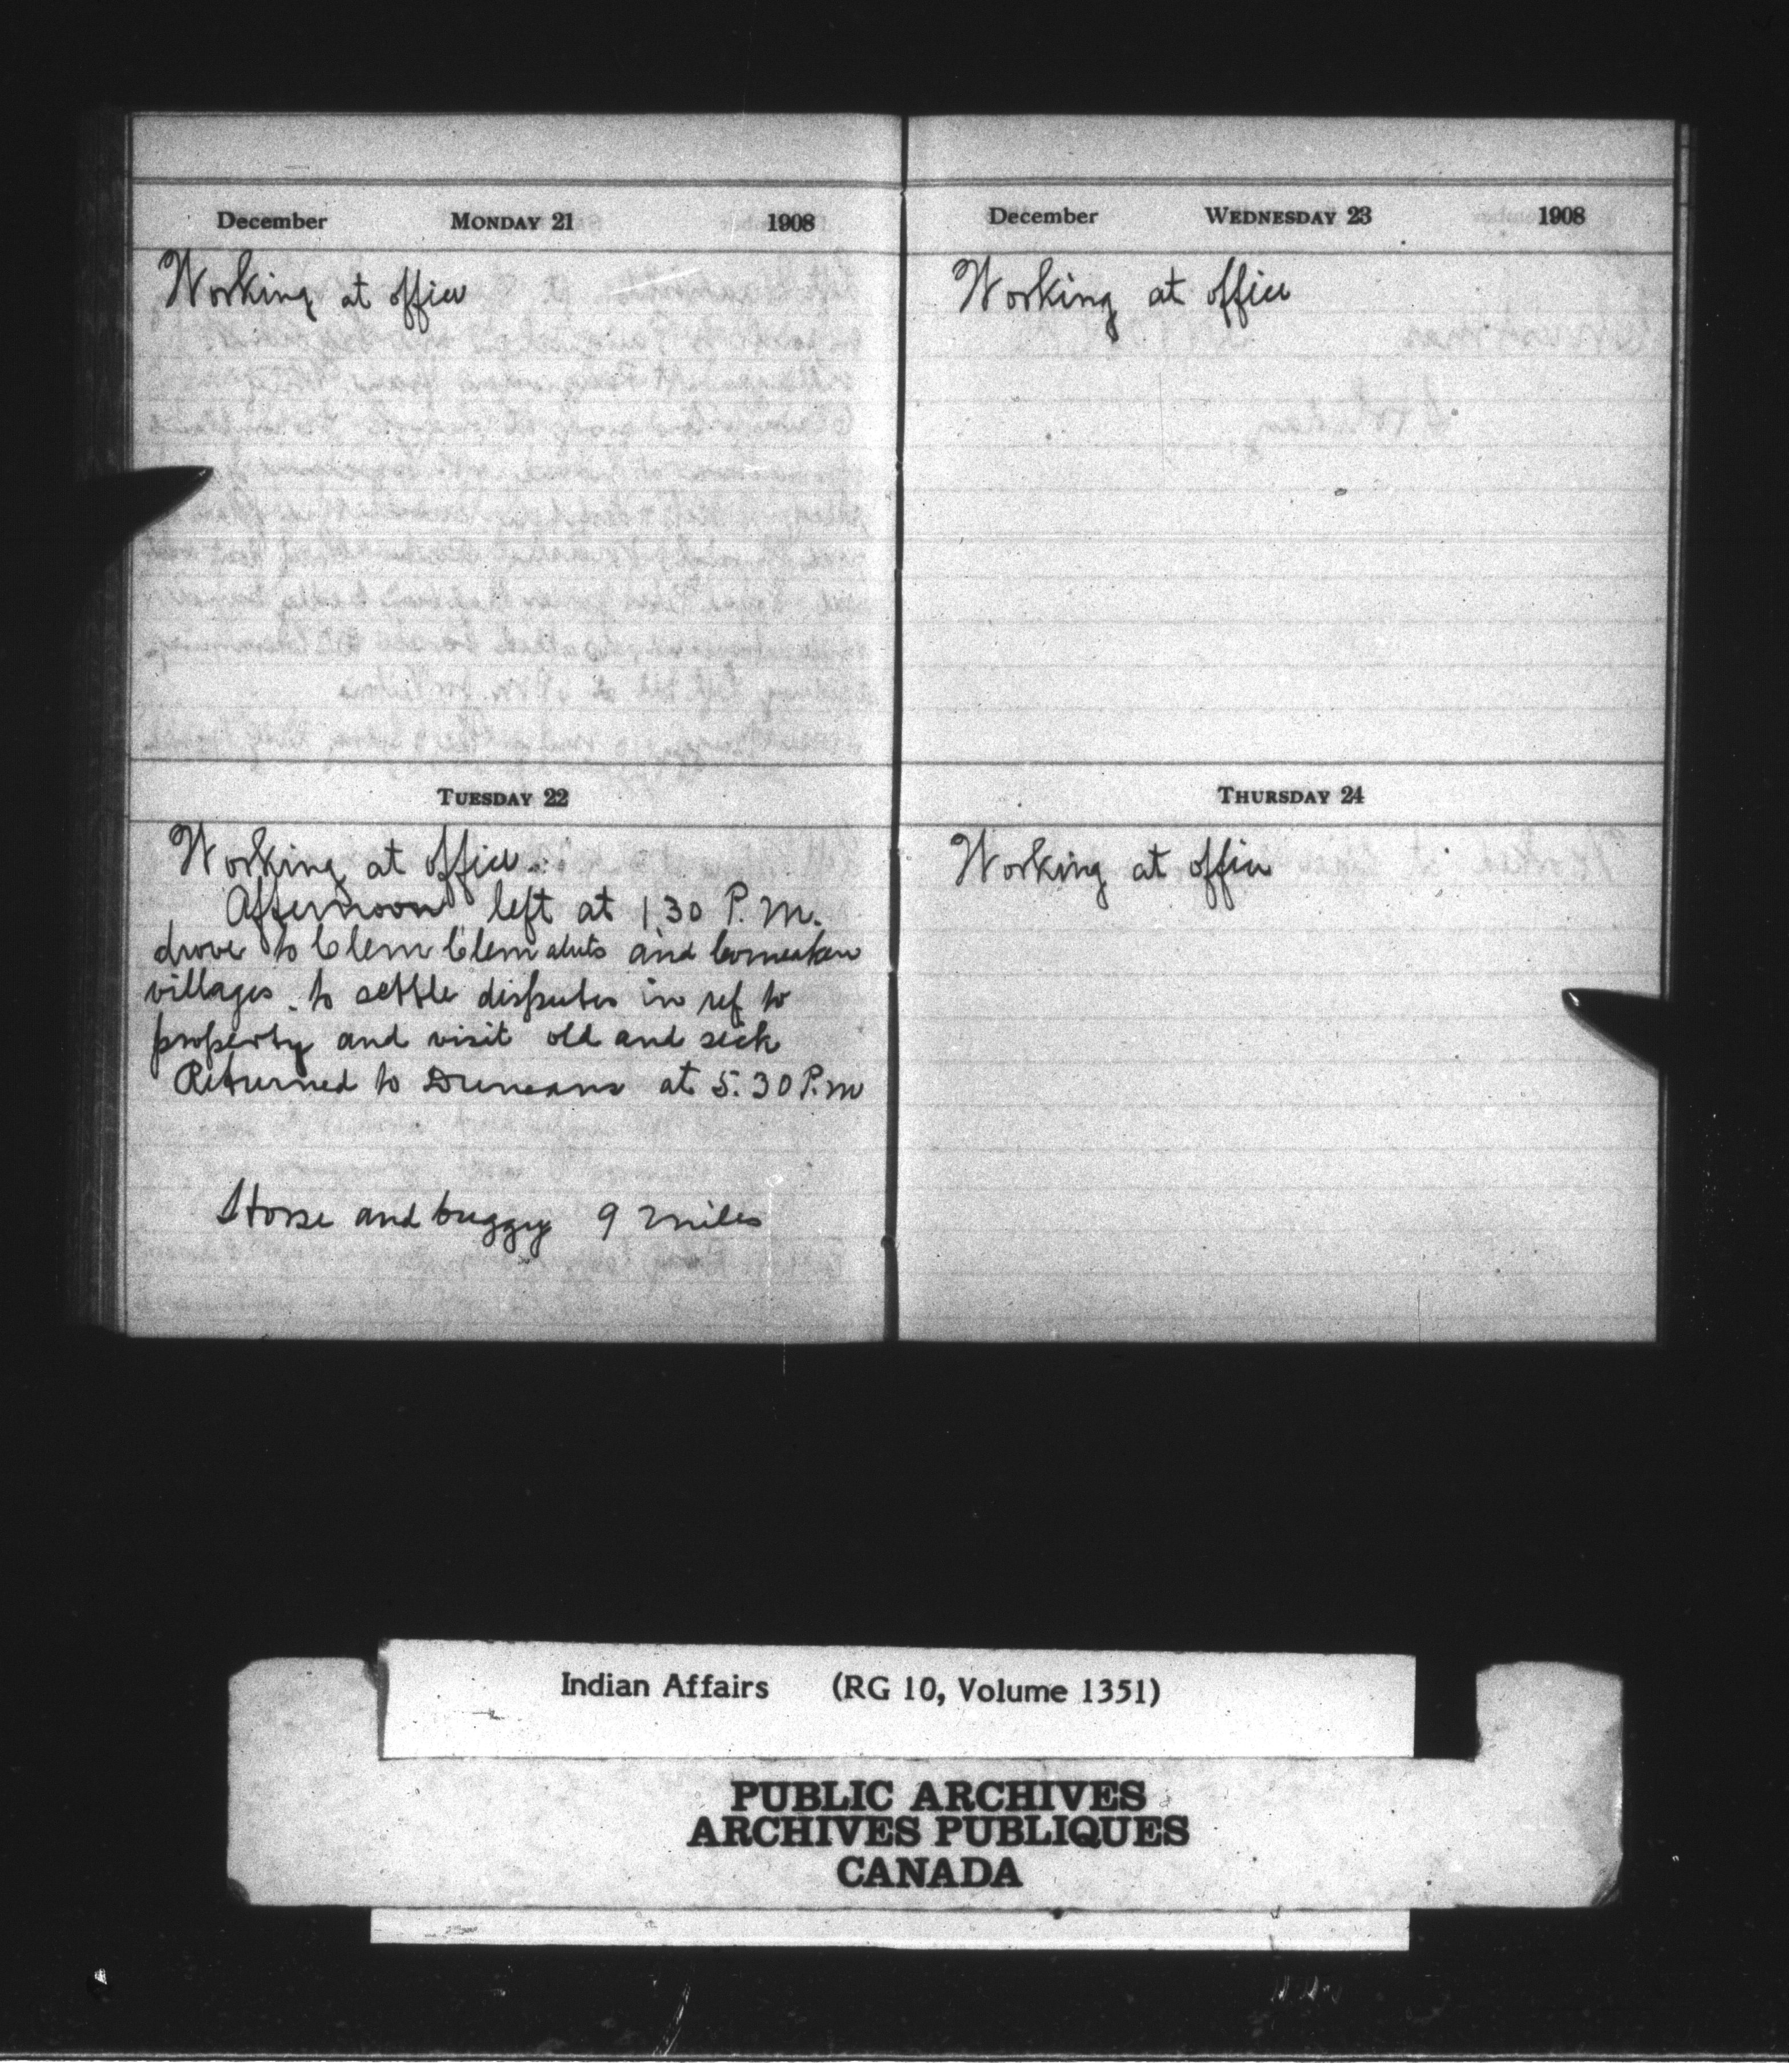 December MONDAY 21 1908
Working at office
TUESDAY 22
Working at office.
Afternoon left at 1 30 P.M.
drove to Clem Clemaluts and Comeaken
villages to settle disputes in ref to
property and visit old and sick
Returned to Duncans at 5.30 P.M
Horse and buggy 9 miles
December WEDNESDAY 23 1908
Working at office
THURSDAY 24
Working at office
Indian Affairs (RG 10, Volume 1351)
PUBLIC ARCHIVES
ARCHIVES PUBLIQUES
CANADA